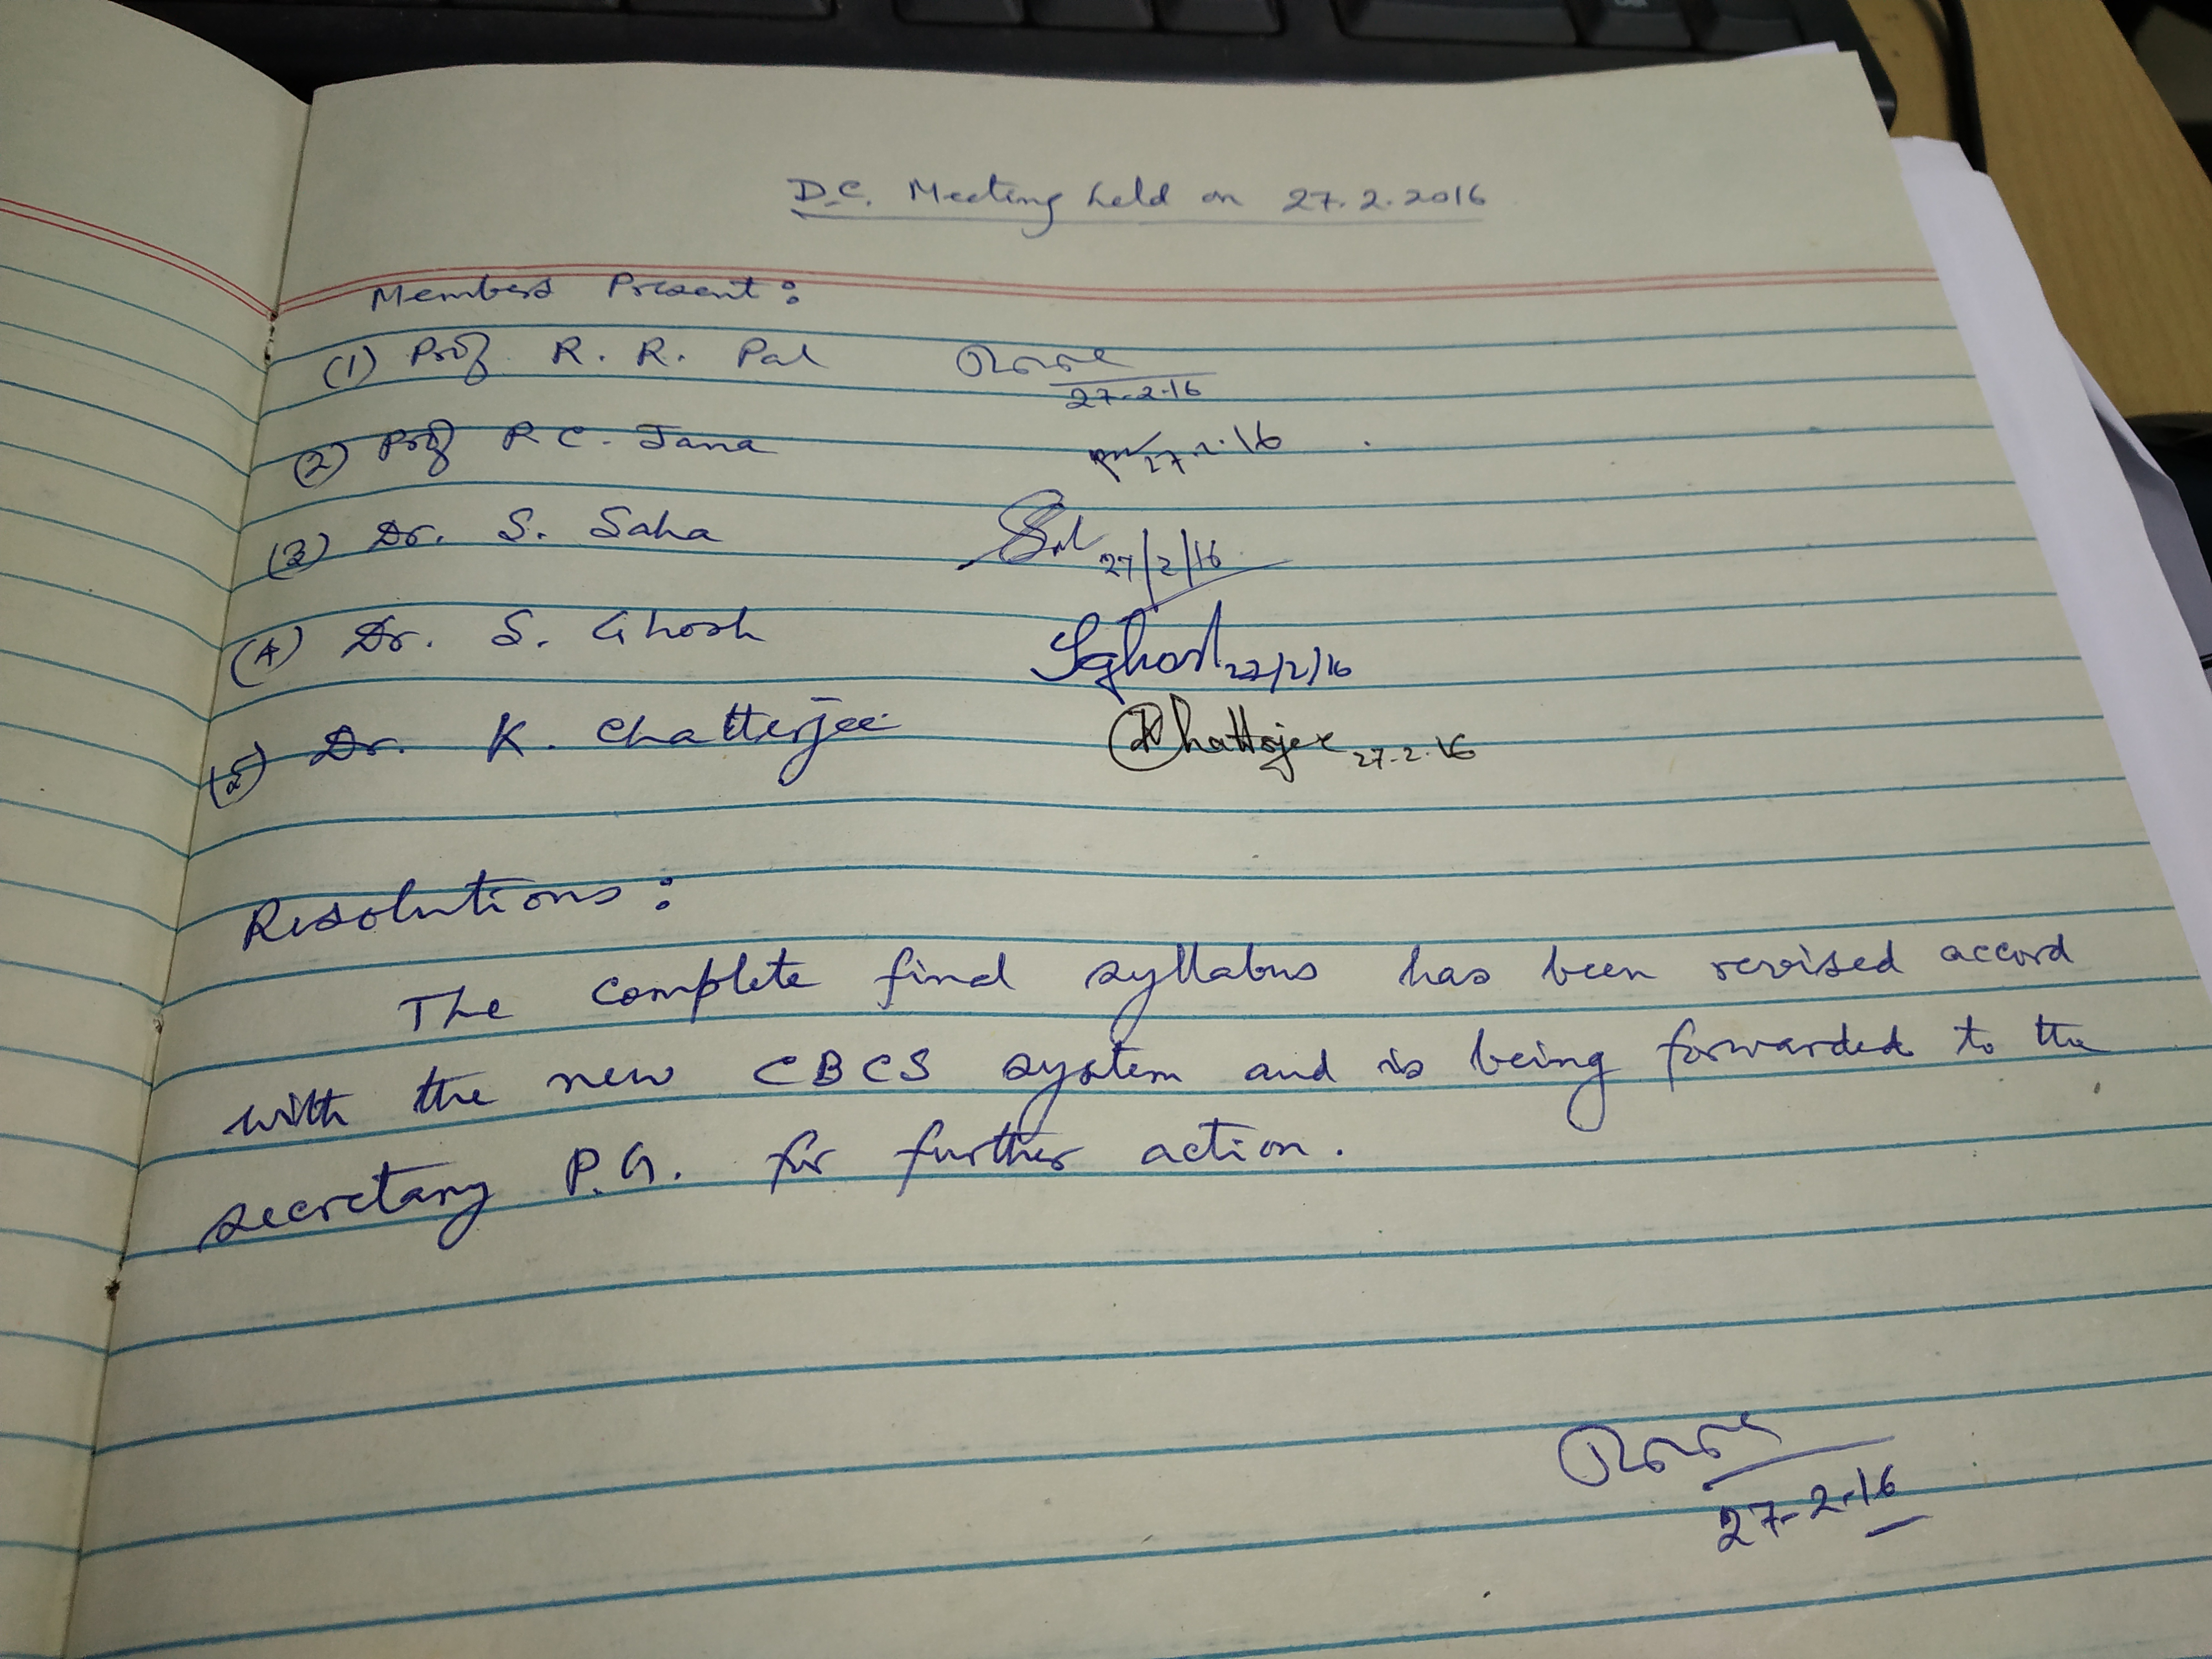 D.C. Meeting held on 27.2.2016
Members Present:
(1) Prof R. R. Pal
27-2-16
(2) Prof R C. Jana
27.2.16
(3) Dr. S. Saha
27/2/16
(4) Dr. S. Ghosh SGhosh 27/2/16
(5) Dr. K. Chatterjee KChatterjee 27-2-16
Resolutions:
The complete find syllabus has been revised accord
with the new CBCS system and is being forwarded to the
secretary P.G. for further action.
27-2-16